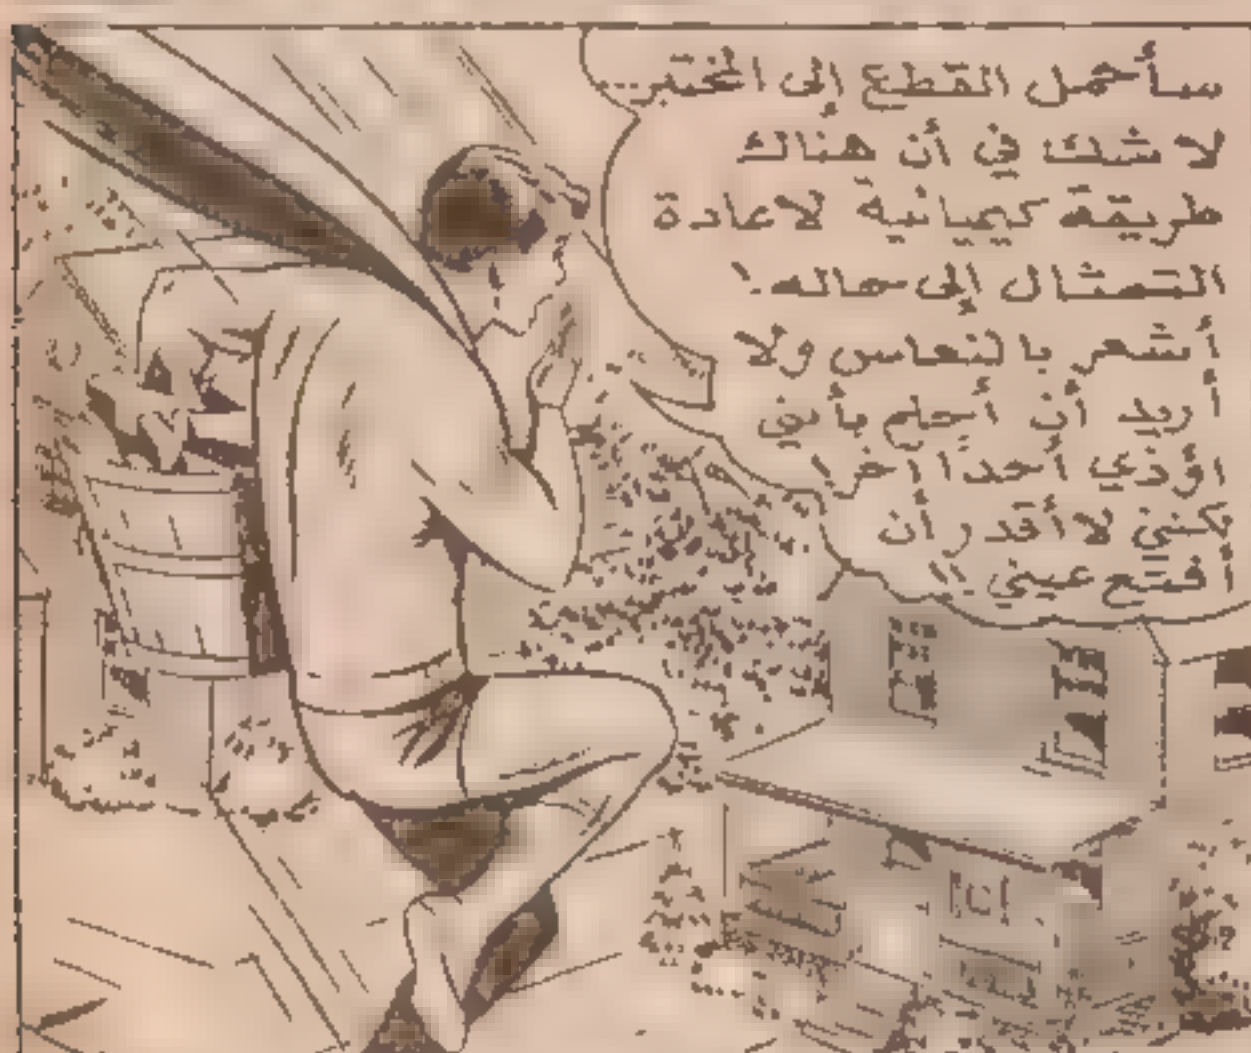 سأحمل القطع إلى المختبر...
لا شك في أن هناك
طريقة كيميائية لاعادة
التمثال إلى حاله.
أشعر بالنعاس ولا
أريد أن أحلم بأنني
اؤذي أحدا اخر!
لكنني لا أقدر أن
أفتح عيني!!